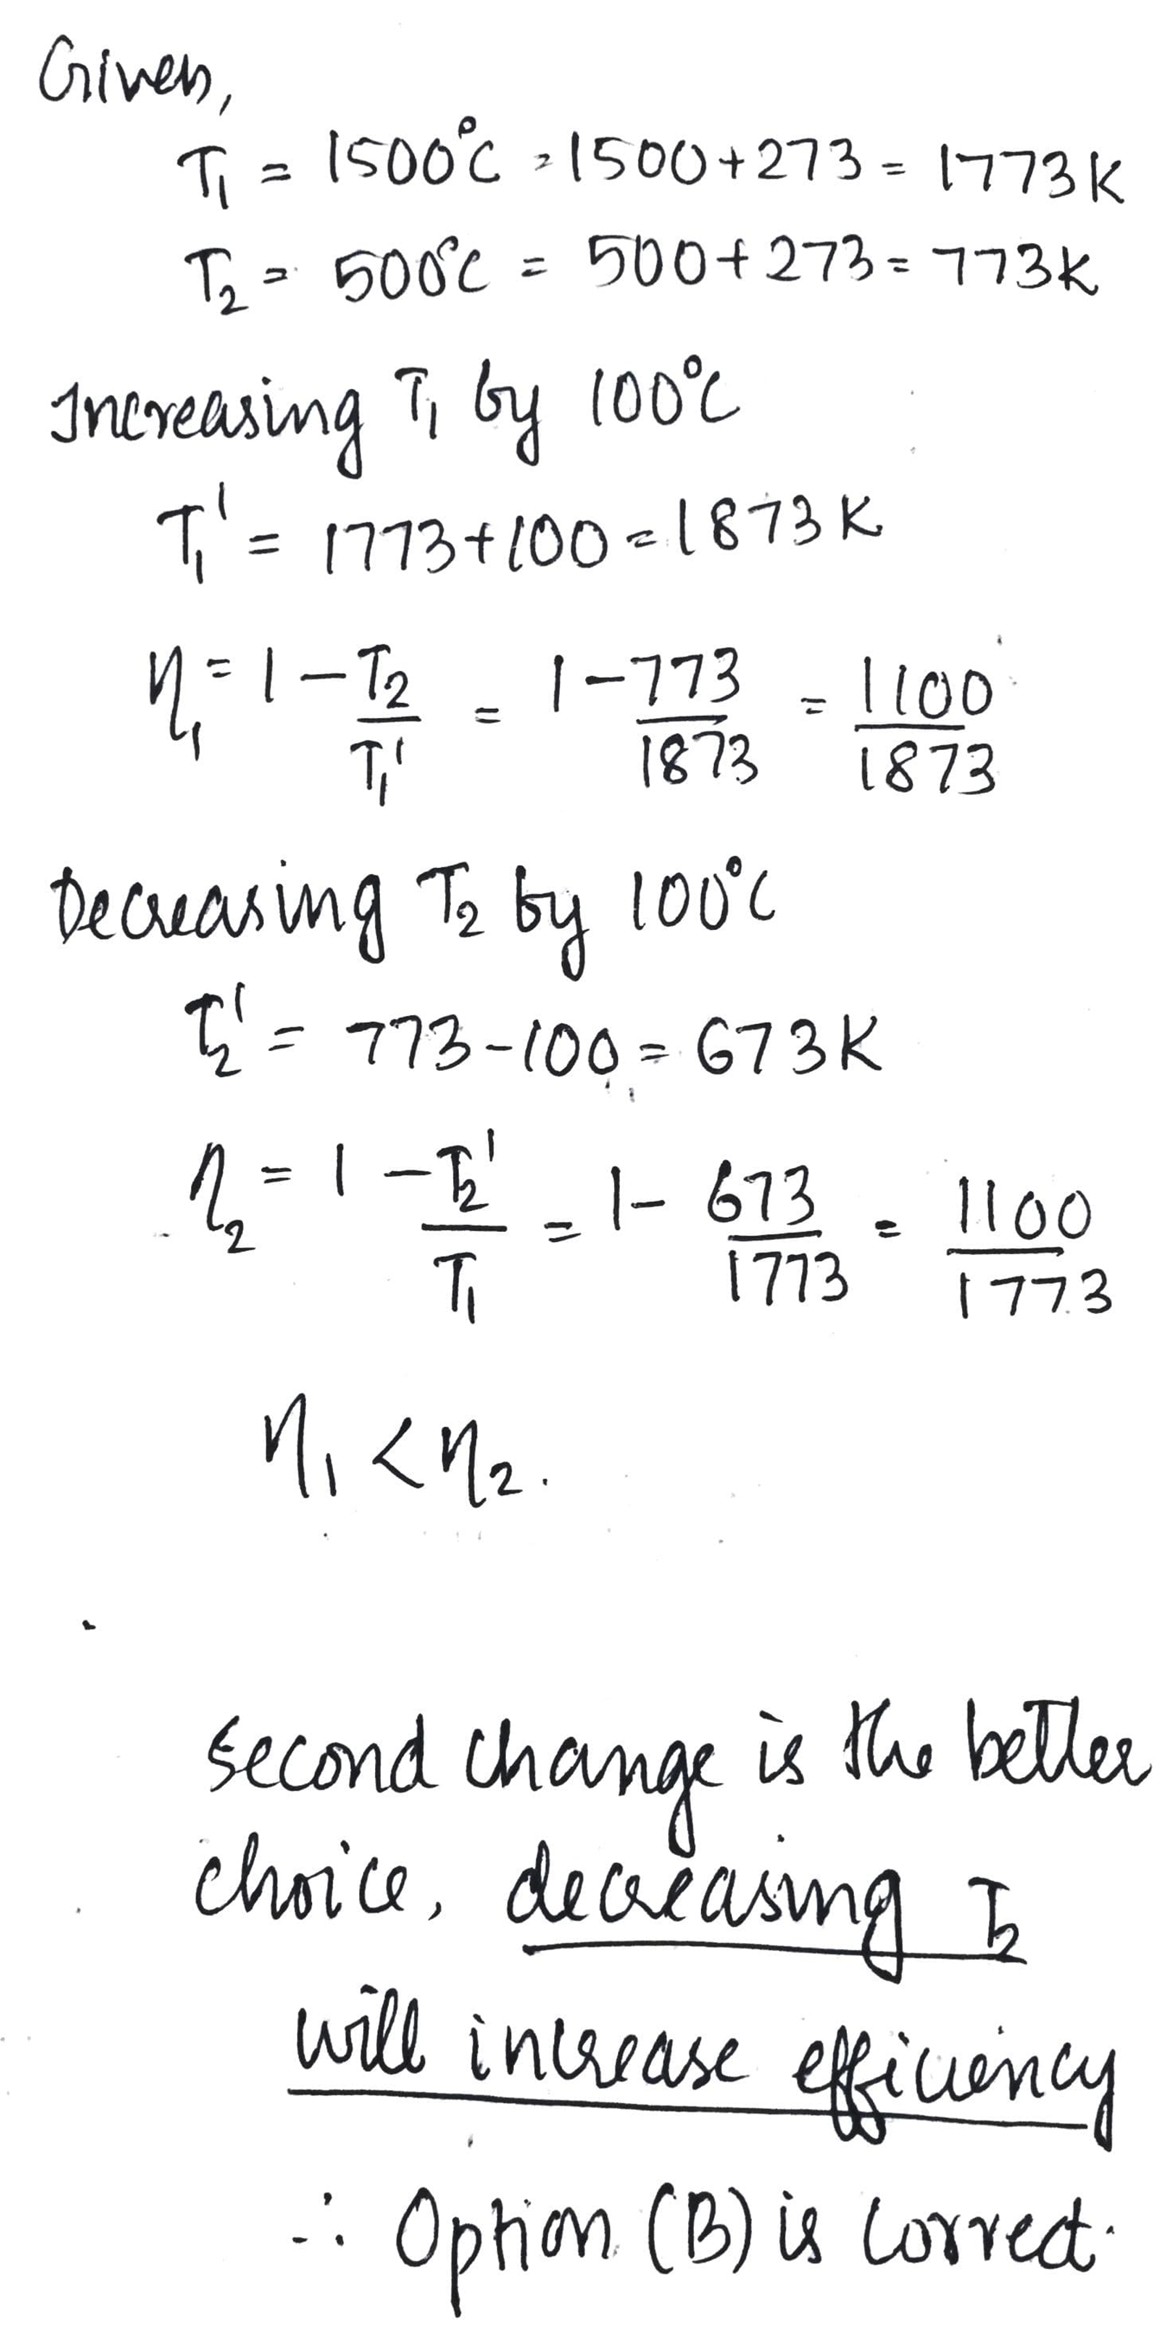 Given,
T₁ = 1500°C = 1500+273 = 1773K
T₂ = 500°C = 500+273 = 773K
Increasing T₁ by 100°C
T₁' = 1773+100 = 1873K
η₁ = 1 - T₂/T₁' = 1 - 773/1873 = 1100/1873
Decreasing T₂ by 100°C
T₂' = 773-100 = 673K
η₂ = 1 - T₂'/T₁ = 1 - 673/1773 = 1100/1773
η₁ < η₂.
second change is the better
choice, decreasing T₂
will increase efficiency
∴ Option (B) is correct.